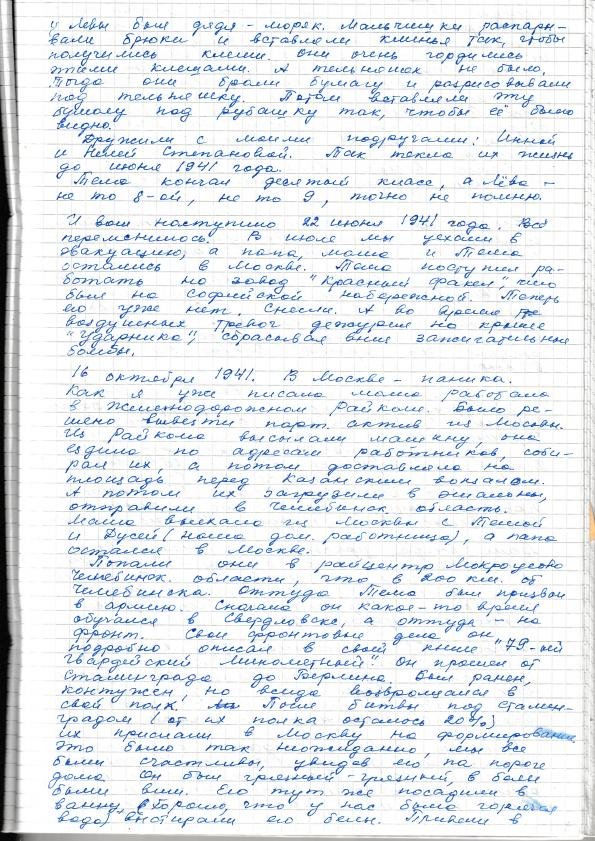 у Лёвы был дядя - моряк. Мальчишки распары-
вали брюки и вставляли клинья так, чтобы
получились клеши. Они очень гордились
этими клешами. А тельняшек не было,
тогда они брали бумагу и разрисовывали
под тельняшку. Потом вставляли эту
бумагу под рубашку так, чтобы её было
видно.
Дружили с моими подругами: Инной
и Нелей Степановой. Так текла их жизнь
до июня 1941 года.
Тема кончал десятый класс, а Лёва -
не то 8-ой, не то 9, точно не помню.
И вот наступило 22 июня 1941 года. Всё
переменилось. В июле мы уехали в
эвакуацию, а папа, мама и Тема
остались в Москве. Тема поступил ра-
ботать на завод "Красный факел", что
был на Софийской набережной. Теперь
его уже нет. Снесли. А во время
воздушных тревог дежурил на крыше
"Ударника", сбрасывая вниз зажигательные
бомбы.
16 октября 1941. В Москве - паника.
Как я уже писала мама работала
в Железнодорожном Райкоме. Было ре-
шено вывезти парт. актив из Москвы.
Из Райкома высылали машину, она
ездила по адресам работников, соби-
рая их, а потом доставляла на
площадь перед Казанским вокзалом.
А потом их загрузили в эшелоны,
отправили в Челябинск. область.
Мама выехала из Москвы с Темой
и Дусей (наша дом. работница), а папа
остался в Москве.
Попали они в райцентр Мокроусово
Челябинск. области, что в 200 км. от
Челябинска. Оттуда Тема был призван
в армию. Сначала он какое-то время
обучался в Свердловске, а оттуда - на
фронт. Свои фронтовые дела он
подробно описал в своей книге "79-ый
Гвардейский Миномётный". Он прошел от
Сталинграда до Берлина. Был ранен,
контужен, но всегда возвращался в
свой полк. После битвы под Сталин-
градом (от их полка осталось 20%)
их прислали в Москву на формирование.
Это было так неожиданно, мы все
были счастливы, увидев его на пороге
дома. Он был грязный-грязный, в белье
были вши. Его тут же посадили в
ванну, (хорошо, что у нас была горячая
вода) выстирали его белье. Пришели в